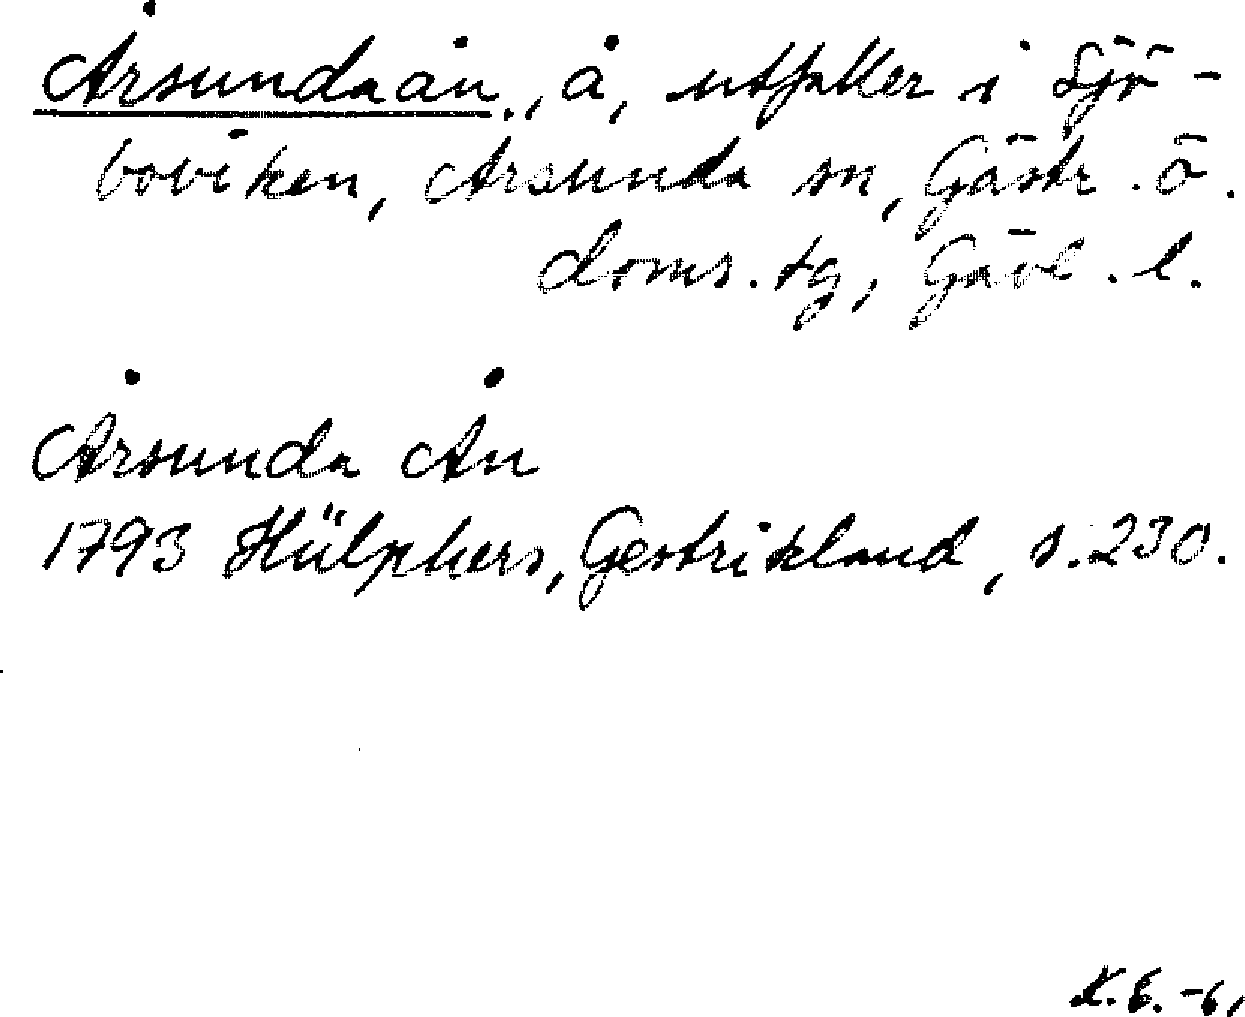 Årsundaån., å, utfaller i Sjö-
boviken, Årsunda sn, Gästr. ö.
doms. tg, Gävl. l.
Årsunda Ån
1793 Hülphers, Gestrikland, s. 230.
K.E. -61